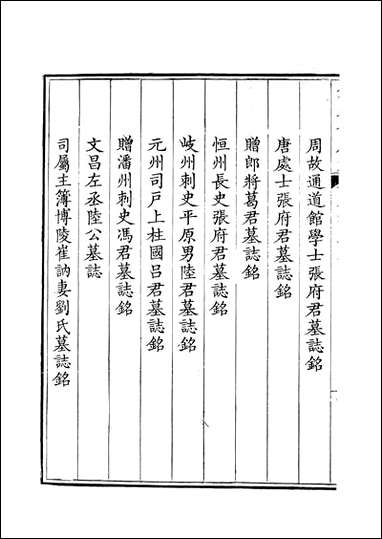 周故通道館學士張府君墓誌銘
唐處士張府君墓誌銘
贈郎將葛君墓誌銘
恒州長史張府君墓誌銘
岐州刺史平原男陸君墓誌銘
元州司戸上柱國呂君墓誌銘
贈潘州刺史馮君墓誌銘
文昌左丞陸公墓誌
司屬主簿博陵崔訥妻劉氏墓誌銘